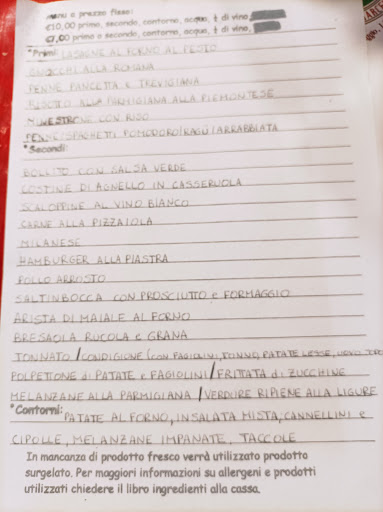 menu a prezzo fisso:
€10,00 primo, secondo, contorno, acqua, ¼ di vino,
€7,00 primo o secondo, contorno, acqua, ¼ di vino,
*Primi: LASAGNE AL FORNO AL PESTO
GNOCCHI ALLA ROMANA
PENNE PANCETTA E TREVIGIANA
RISOTTO ALLA PARMIGIANA ALLA PIEMONTESE
MINESTRONE CON RISO
PENNE/SPAGHETTI POMODORO/RAGÙ/ARRABBIATA
*Secondi:
BOLLITO CON SALSA VERDE
COSTINE DI AGNELLO IN CASSERUOLA
SCALOPPINE AL VINO BIANCO
CARNE ALLA PIZZAIOLA
MILANESE
HAMBURGER ALLA PIASTRA
POLLO ARROSTO
SALTINBOCCA CON PROSCIUTTO e FORMAGGIO
ARISTA DI MAIALE AL FORNO
BRESAOLA RUCOLA e GRANA
TONNATO / CONDIGIONE (CON FAGIOLINI, TONNO, PATATE LESSE, UOVO
POLPETTONE di PATATE e FAGIOLINI / FRITATA di ZUCCHINE
MELANZANE ALLA PARMIGIANA / VERDURE RIPIENE ALLA LIGURE
*Contorni: PATATE AL FORNO, INSALATA MISTA, CANNELLINI e
CIPOLLE, MELANZANE IMPANATE, TACCOLE
In mancanza di prodotto fresco verrà utilizzato prodotto
surgelato. Per maggiori informazioni su allergeni e prodotti
utilizzati chiedere il libro ingredienti alla cassa.